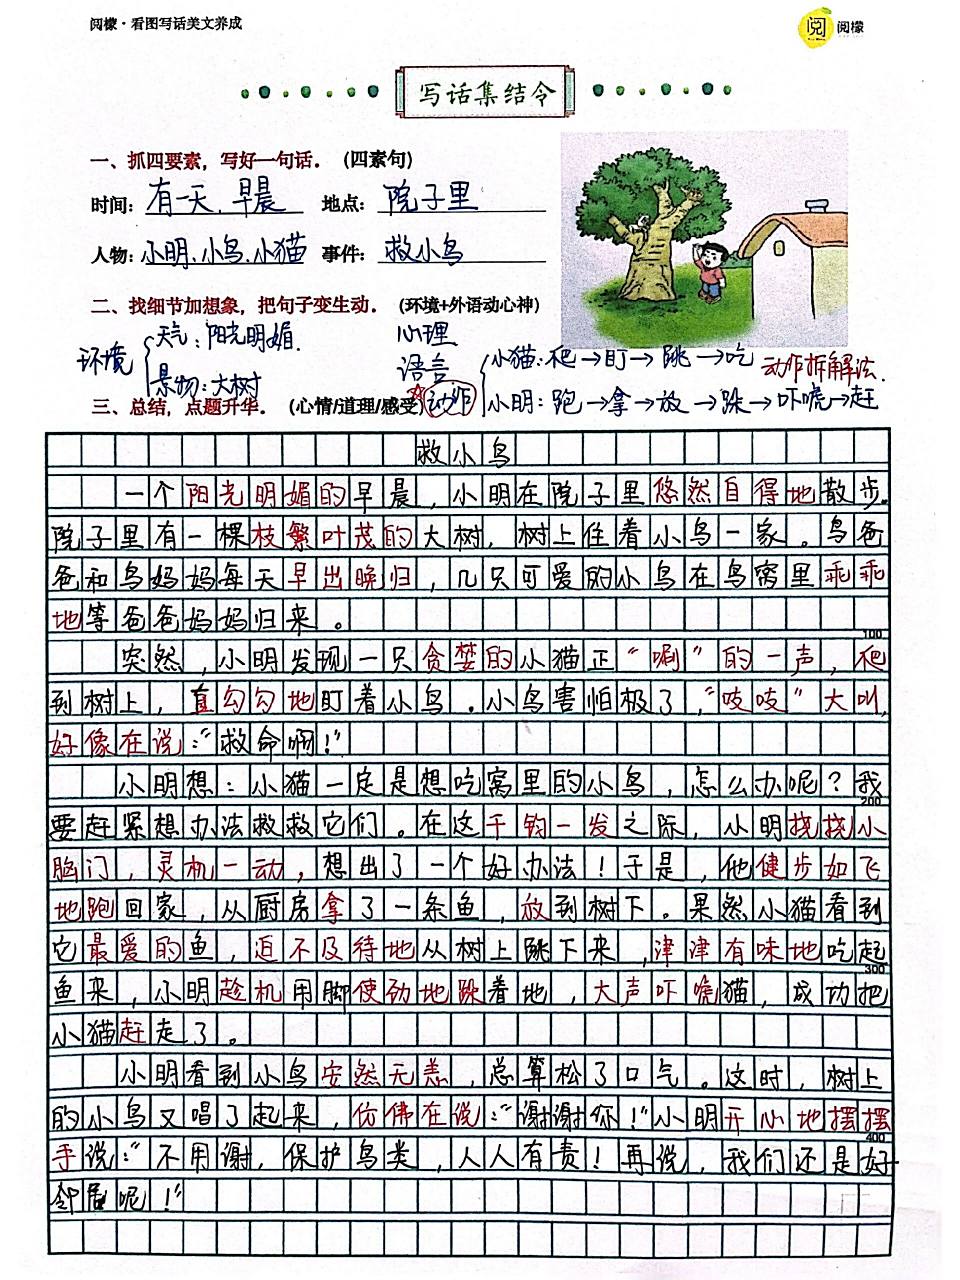 阅檬·看图写话美文养成
阅 阅檬
写话集结令
一、抓四要素，写好一句话．（四素句）
时间：有一天．早晨 地点：院子里
人物：小明．小鸟．小猫 事件：救小鸟
二、找细节加想象，把句子变生动．（环境+外语动心神）
环境 天气：阳光明媚． 心理
景物：大树 语言
小猫：爬→盯→跳→吃 动作拆解法．
三、总结，点题升华．（心情/道理/感受） 动作 小明：跑→拿→放→跺→吓唬→赶
救小鸟
一个阳光明媚的早晨，小明在院子里悠然自得地散步。
院子里有一棵枝繁叶茂的大树，树上住着小鸟一家。鸟爸
爸和鸟妈妈每天早出晚归，几只可爱的小鸟在鸟窝里乖乖
地等爸爸妈妈归来。
100
突然，小明发现一只贪婪的小猫正“唰”的一声，爬
到树上，直勾勾地盯着小鸟。小鸟害怕极了，“吱吱”大叫，
好像在说：“救命啊！”
小明想：小猫一定是想吃窝里的小鸟，怎么办呢？我
200
要赶紧想办法救救它们。在这千钧一发之际，小明挠挠小
脑门，灵机一动，想出了一个好办法！于是，他健步如飞
地跑回家，从厨房拿了一条鱼，放到树下。果然小猫看到
它最爱的鱼，迫不及待地从树上跳下来，津津有味地吃起
300
鱼来，小明趁机用脚使劲地跺着地，大声吓唬猫，成功把
小猫赶走了。
小明看到小鸟安然无恙，总算松了口气。这时，树上
的小鸟又唱了起来，仿佛在说：“谢谢你！”小明开心地摆摆
400
手说：“不用谢，保护鸟类，人人有责！再说，我们还是好
邻居呢！”